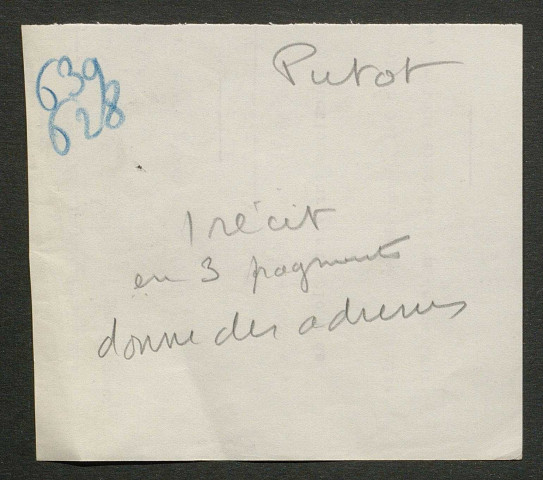 639
628
Putot
1 récit
en 3 fragments
donne des adresses